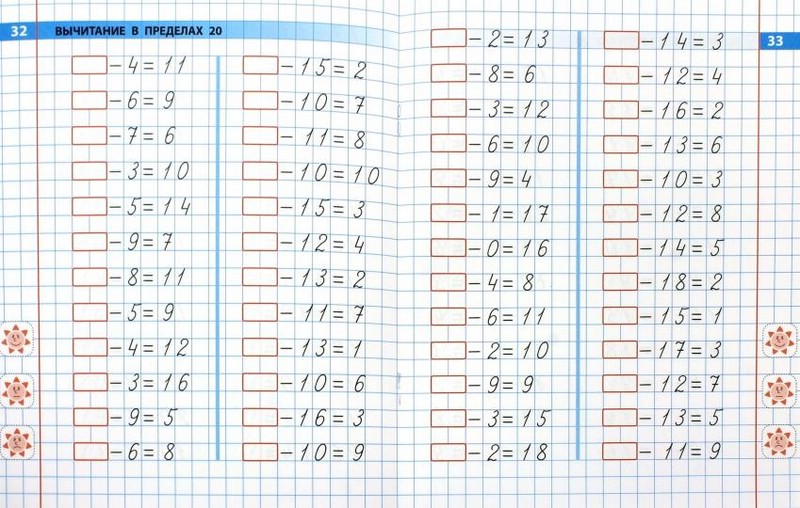 32 ВЫЧИТАНИЕ В ПРЕДЕЛАХ 20
- 4 = 11
- 6 = 9
- 7 = 6
- 3 = 10
- 5 = 14
- 9 = 7
- 8 = 11
- 5 = 9
- 4 = 12
- 3 = 16
- 9 = 5
- 6 = 8
- 15 = 2
- 10 = 7
- 11 = 8
- 10 = 10
- 15 = 3
- 12 = 4
- 13 = 2
- 11 = 7
- 13 = 1
- 10 = 6
- 16 = 3
- 10 = 9
- 2 = 13
- 8 = 6
- 3 = 12
- 6 = 10
- 9 = 4
- 1 = 17
- 0 = 16
- 4 = 8
- 6 = 11
- 2 = 10
- 9 = 9
- 3 = 15
- 2 = 18
- 14 = 3
- 12 = 4
- 16 = 2
- 13 = 6
- 10 = 3
- 12 = 8
- 14 = 5
- 18 = 2
- 15 = 1
- 17 = 3
- 12 = 7
- 13 = 5
- 11 = 9
33